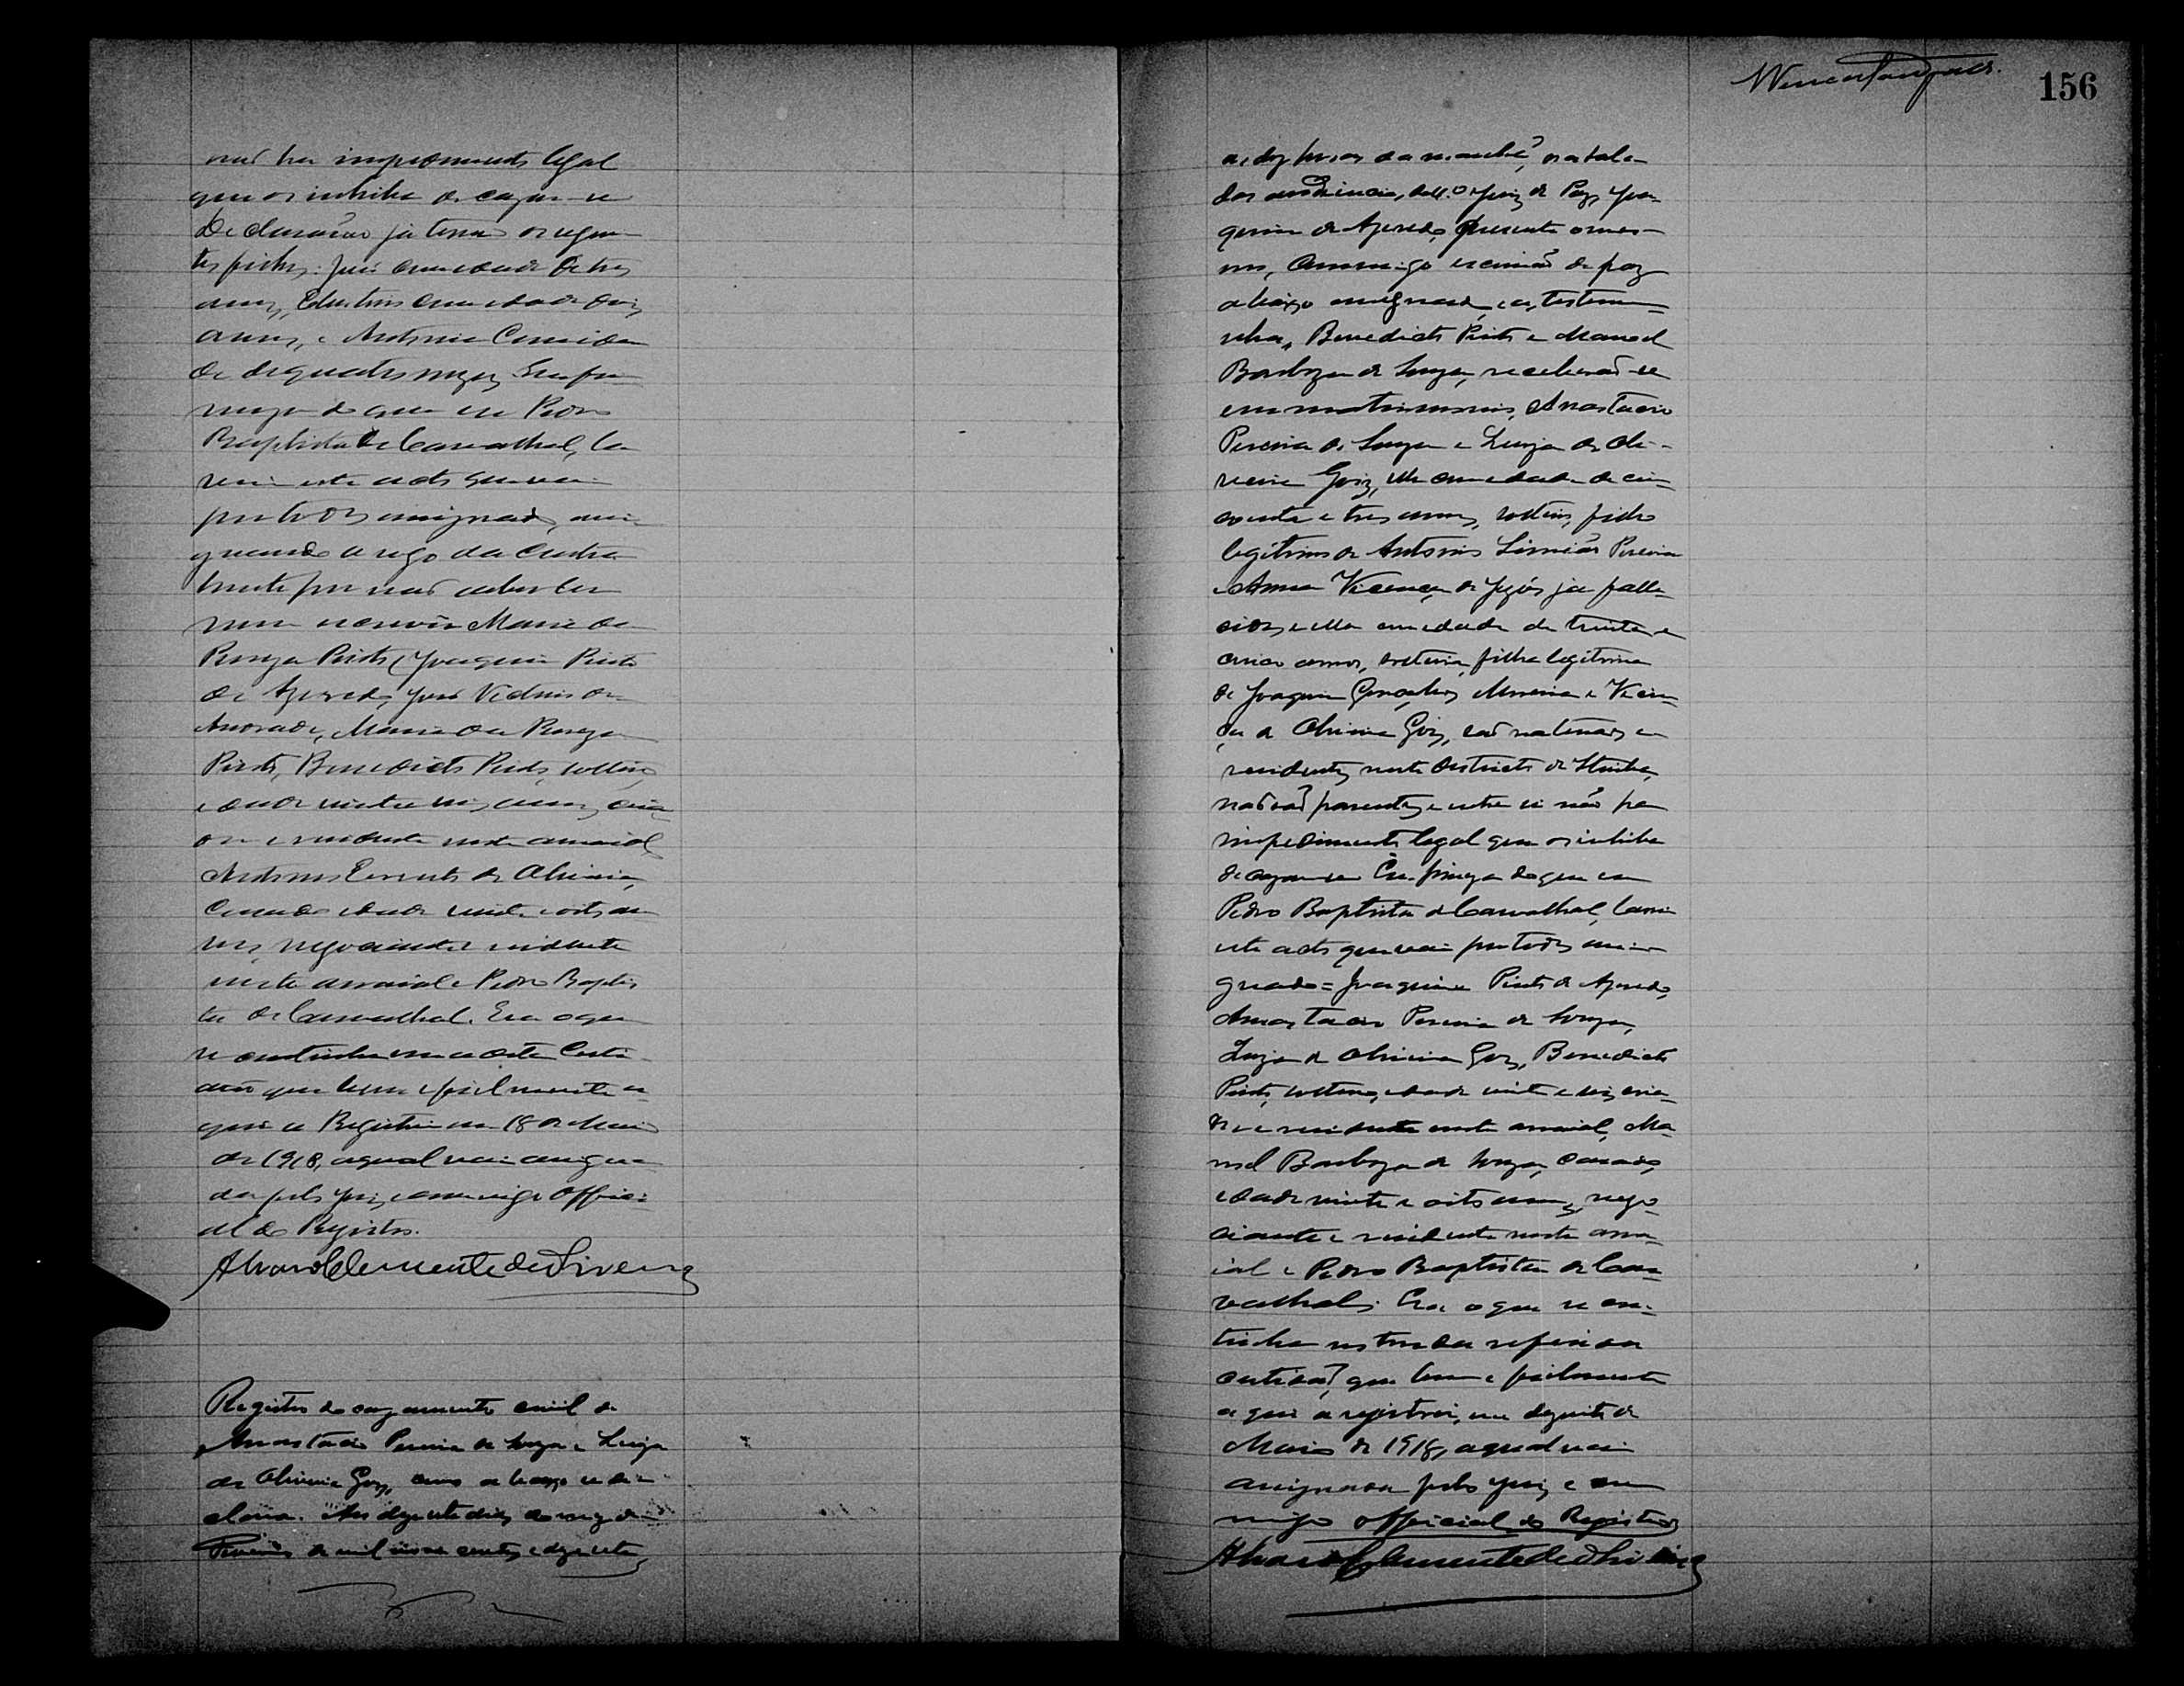 não ha impedimento legal
que os inhiba de cazar-se
Declararão já terem os seguin
tes filhos: José com edade de tres
annos, Edeltrus com edade dois
annos, e Antonia Comeida
de de quatro mezes. Em fir
meza do que eu Pedro
Baptista de Carvalhal, la
vrei este acto que vai
por todos assignado, assi
gnando a rogo da Contra
hente por não saber ler
nem escrever Maria da
Pureza Pinto, Joaquim Pinto
de Azevedo, José Victorio de
Andrade, Maria da Pureza
Pinto, Benedicto Pinto, solteiro,
edade vinte e seis annos, cria
dor e residente neste arraial
Antonio Evaristo de Oliveira,
Casado edade vinte e oito an
nos, negociante e residente
neste arraial e Pedro Baptis
ta de Carvalhal. Era o que
se continha em a dita Certi
dão que bem e fielmente a
qui a Registrei em 18 de Maio
de 1918, a qual vai assigna
da pelo Juiz, e commigo Offici
al do Registro.
Alvaro Clemente de Oliveira
Registro do cazamento civil de
Anastacio Pereira de Souza e Luiza
de Oliveira Goiz, como abaixo se de
clara. Aos dezesete dias do mez de
Fevereiro de mil nove centos e dezesete,
156
as dez horas da manhã, na sala
das audiencias, do M.º Juiz de Paz, Joa
quim de Azevedo, presente o mes
mo, Commigo escrivão de paz
abaixo assignado, e as testemu
nhas, Benedicto Pinto e Manoel
Barboza de Souza, receberão-se
em matrimonio, Anastacio
Pereira de Souza e Luiza de Oli-
veira Goiz, elle com edade de cin
coenta e tres annos, solteiro, filho
legitimo de Antonio Simião Pereira
e Anna Vicença de Jezús já falle
cidos, e ella com edade de trinta e
cinco annos, solteira, filha legitima
de Joaquim Gonçalves Moreira e Vicen
ça de Oliveira Goiz, são naturaes e
residentes neste districto de
não são parentes e entre si não ha
impedimento legal que os inhiba
de cazar-se Em firmeza do que eu
Pedro Baptista de Carvalhal, lavrei
este acto que vai por todos assi
gnado = Joaquim Pinto de Azevedo,
Anastacio Pereira de Souza,
Luiza de Oliveira Goiz, Benedicto
Pinto, solteiro, edade vinte e seis, cria
dor e residente neste arraial, Ma
noel Barboza de Souza, Casado,
edade vinte e oito annos, nego
ciante e residente neste arra
ial e Pedro Baptista de Car
valhal. Era o que se con
tinha no teor da referida
certidão, que bem e fielmente
aqui a registrei, em dezoito de
Maio de 1918, a qual vai
assignada pelo Juiz, e com
migo official do Registro
Alvaro Clemente de Oliveira